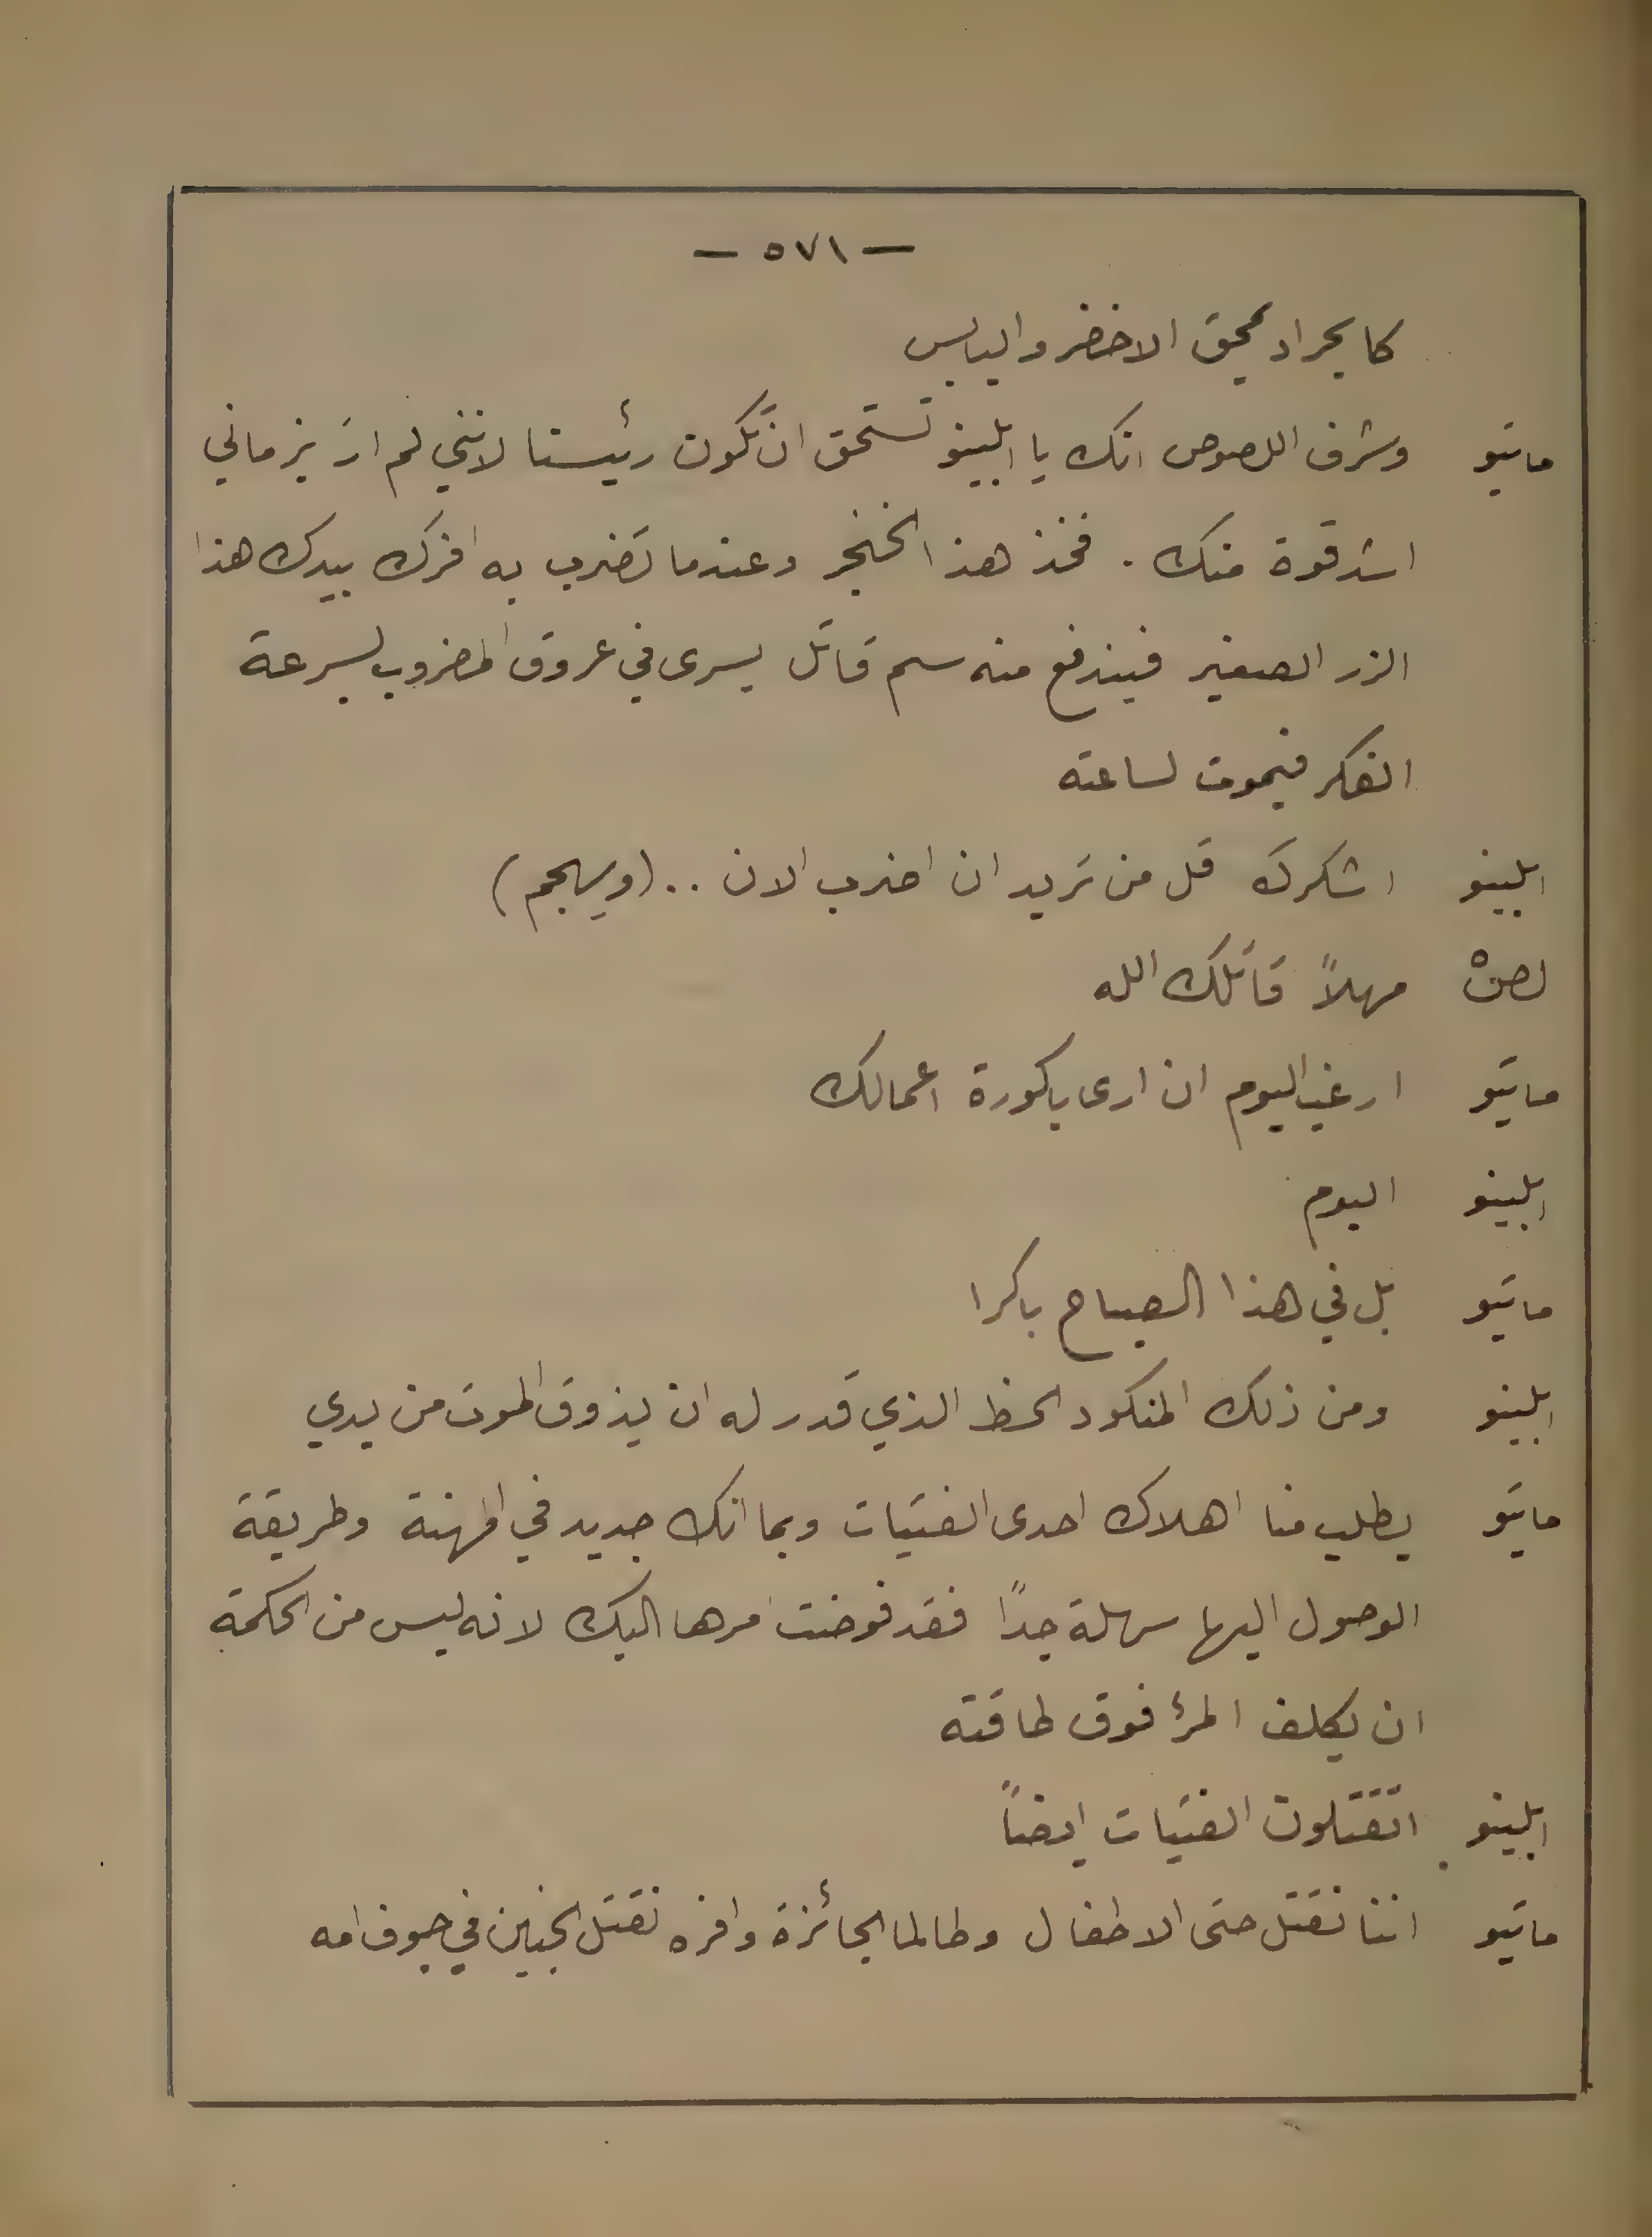 — ٥٧١ —
كالجراد يمحق الاخضر واليابس
ماتيو وشرف اللصوص انك يا ابلينو تستحق ان تكون رئيسنا لانني لم ارَ بزماني
اشد قوة منك . فخذ هذا الخنجر وعندما تضرب به افرك بيدك هذا
الزر الصغير فيندفع منه سم قاتل يسرى في عروق المضروب بسرعة
الفكر فيموت لساعته
ابلينو اشكرك قل من تريد ان اضرب الان .. (ويهجم)
لص٥ مهلاً قاتلك الله
ماتيو ارغب اليوم ان ارى باكورة اعمالك
ابلينو اليوم
ماتيو بل في هذا الصباح باكرا
ابلينو ومن ذلك المنكود الحظ الذي قدر له ان يذوق الموت من يدي
ماتيو يطلب منا اهلاك احدى الفتيات وبما انك جديد في المهنة وطريقة
الوصول اليها سهلة جداً فقد فوضت امرها اليك لانه ليس من الحكمة
ان يكلف المرؤ فوق طاقته
ابلينو اتقتلون الفتيات ايضاً
ماتيو اننا نقتل حتى الاطفال وطالما الجائزة وافره نقتل الجنين في جوف امه